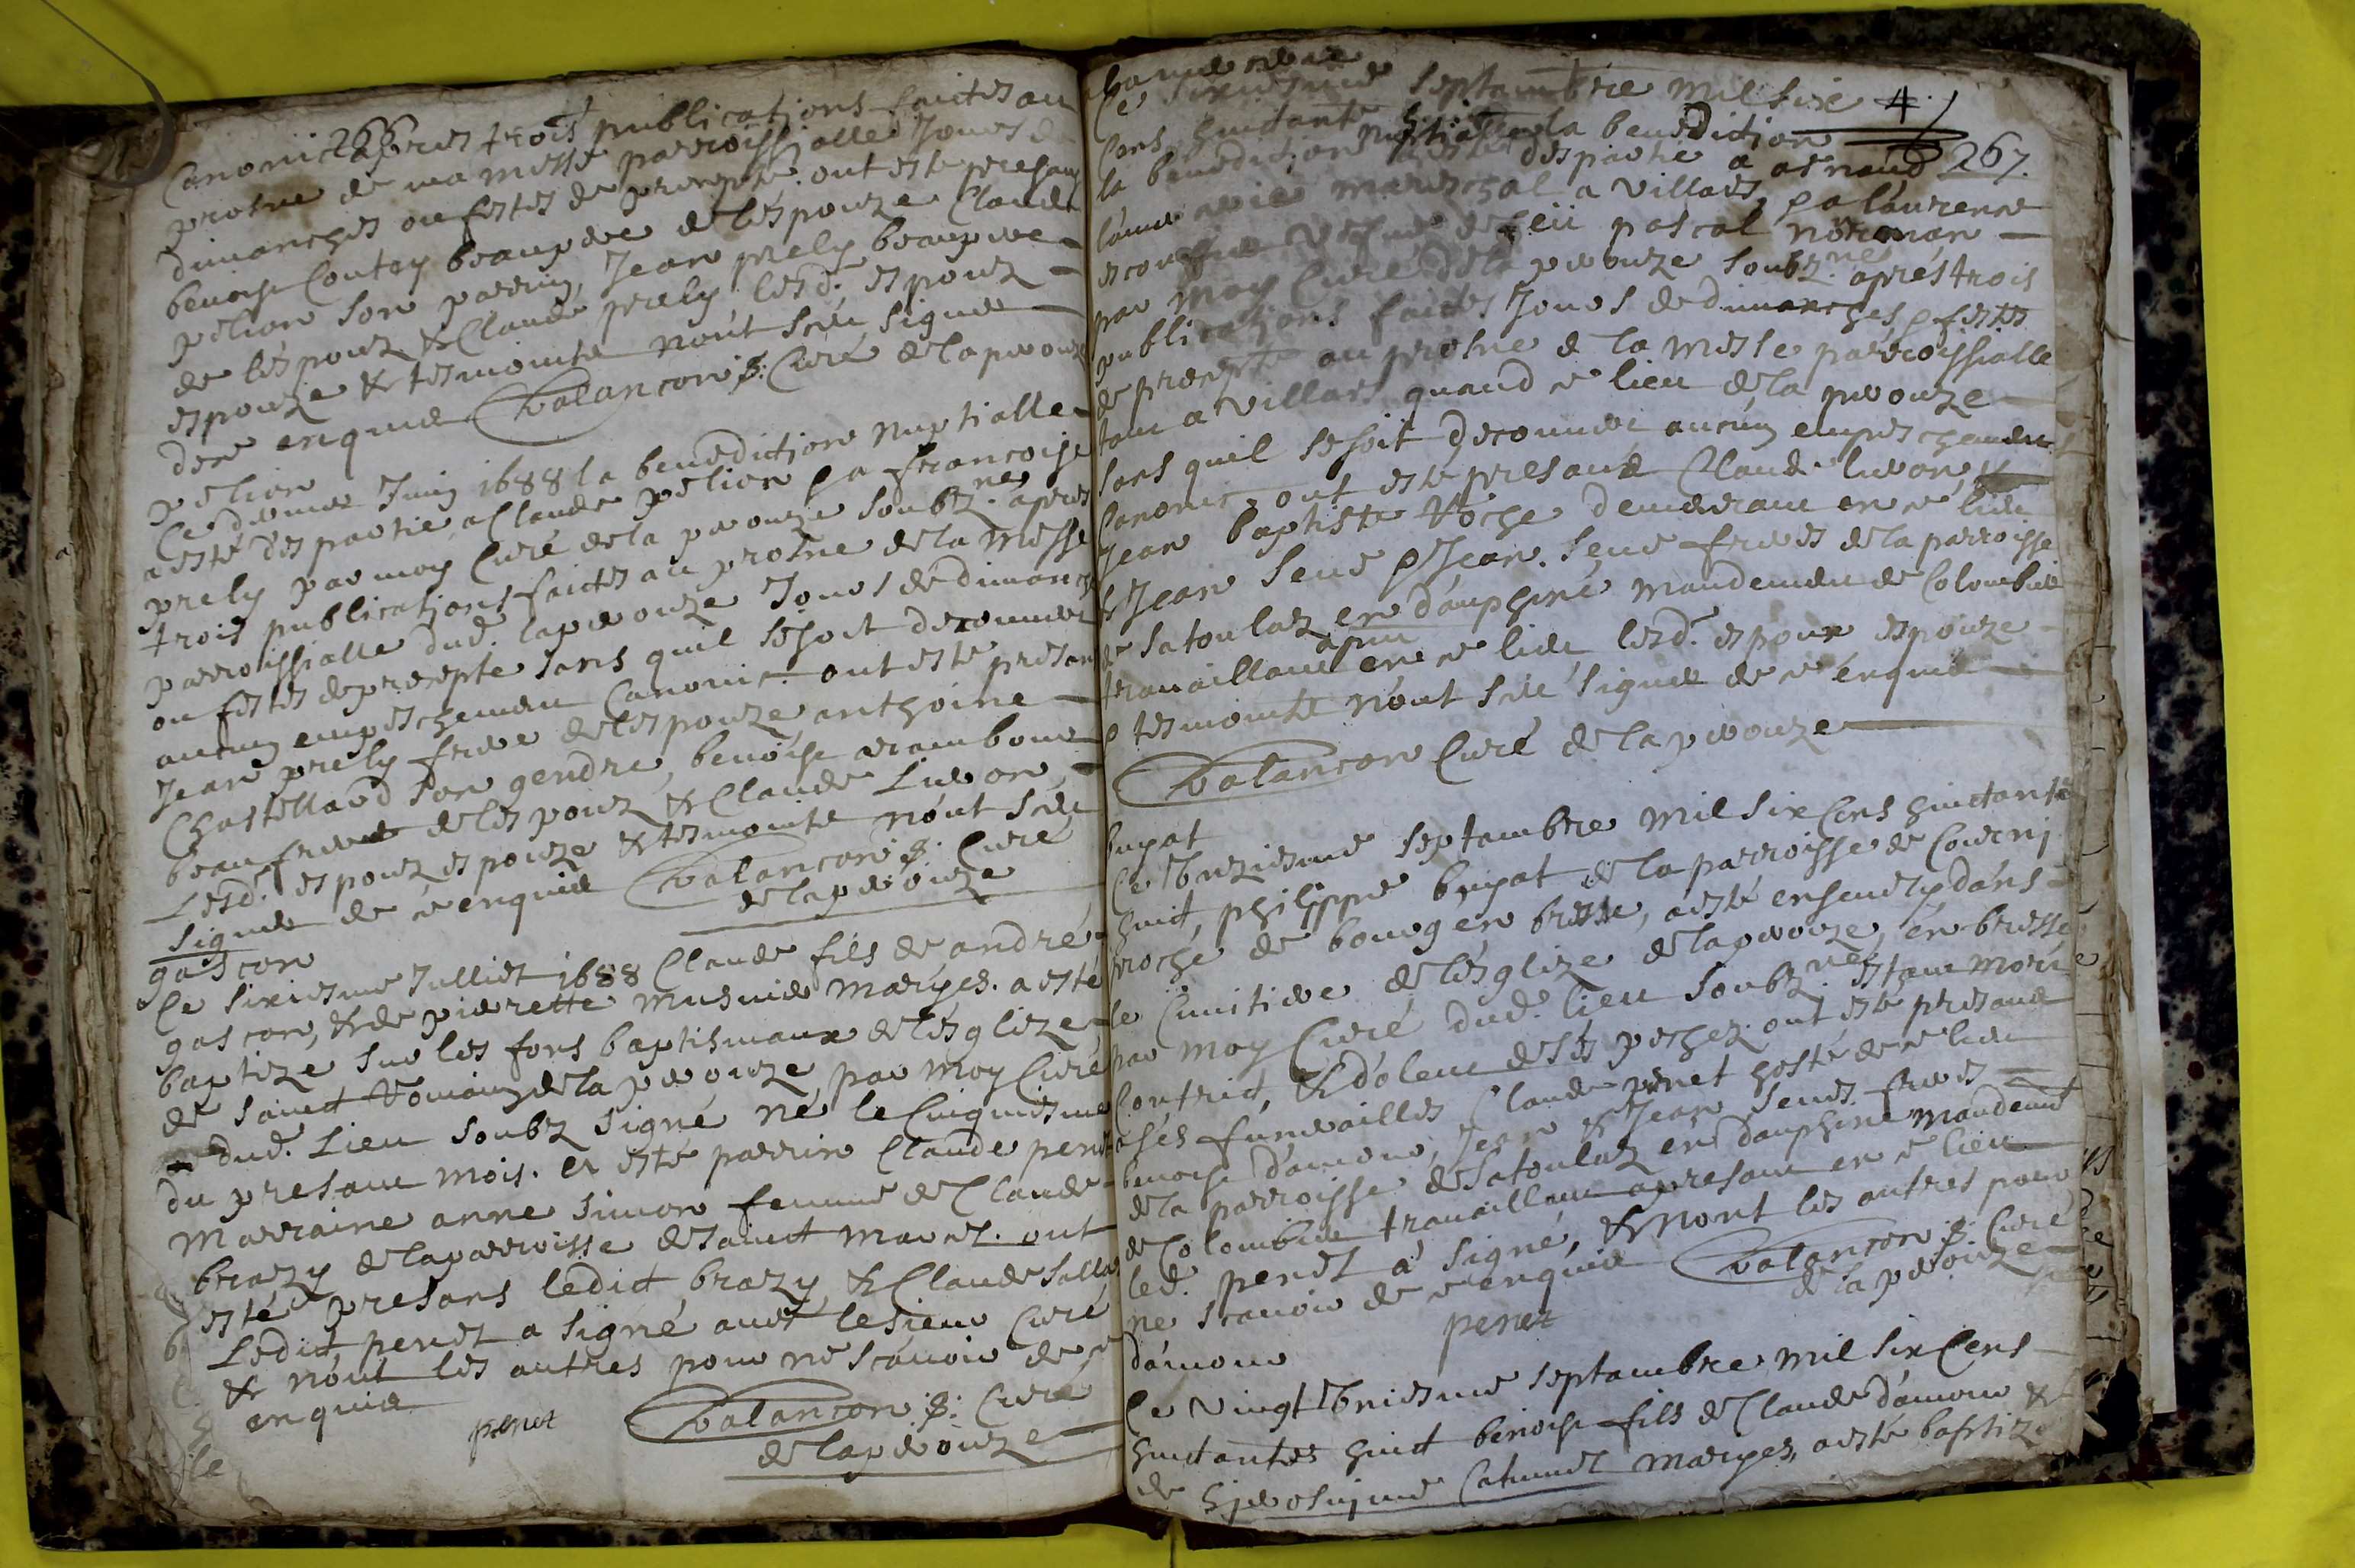 266
Canonic apres trois publications faictes au
prosne de ma messe parroissialle Jours de
dimanches ou festes de precepte. ont este presans
benoist Coutey beaupere de lespouze Claude
pelion son parrin, Jean prely beaupere
de lespoux & Claude prely lesd. espoux
espouze & tesmoints nont sceu signer
dece enquis Balancon p. Curé de la perouze
pelion
Ce Juin 1688 la benediction nuptialle
a esté despartie a Claude pelion & a francoise
prely par moy Curé de la perouze soubz.né apres
trois publications faictes au prosne de la messe
parroissialle dud. laperouze Jours de dimanches
ou festes de precepte sans quil se soit decouvert
aucun empeschement Canonic. ont este presans
Jean prely frere de lespouze, anthoine
Chastellard son gendre, benoist
beaufrere de lespoux & Claude Livron,
Lesd. espoux espouze & tesmoints nont sceu
signer de ce enquis Balancon p. Curé
de laperouze
gascon
Le sixiesme Julliet 1688 Claude fils de andré
gascon, & de pierrette musnier maryes. a esté
baptizé sur les fons baptismaux de lesglize
de sainct Romain de la perouze par moy Curé
dud. Lieu soubz signé né le Cinquiesme
du presant mois. et esté parrin Claude penet
Marraine anne simon femme de Claude
brazy de la parroisse de sainct marcel. ont
esté presans ledict brazy & Claude salla
Ledict penet a signé avec le sieur Curé
& nont les autres pour ne scavoir de ce
enquis
penet Balancon p. Curé
de laperouze
4
267.
Le sixiesme septambre mil six
Cens huictante la benediction
la benediction nuptialle despartie a arnaud
mareschal a villars, & a laurence
vefve de feü pascal norman
par moy Curé de la perouze soubz.né apres trois
publications faictes Jours de dimanches & festes
de precepte au prosne de la messe parroissialle
tant a villars quand ce lieu de la perouze
sans quil se soit decouvert aucun empeschement
Canonic, ont este presans Claude livron,
Jean baptiste Roche demeurant en ce lieu
& Jean seve & Jean seve freres de la parroisse
de satoulaz en dauphiné mandement de Colombier
travaillant apnt en ce lieu lesd. espoux espouze
& tesmoints nont sceu signer de ce enquis
Balancon Curé de la perouze
buyat
Ce Unziesme septambre mil six Cens huictante
huict, philippe buyat de la parroisse de
proche de bourg en bresse, a esté ensevely dans
le Cimitiere de lesglize de la perouze, en bresse
par moy Curé dud. lieu soubz.né estant mort
Contrict, & dolent de ses pechez. ont este presans
a ses funerailles Claude penet hoste de ce lieu
benoist damour, Jean & Jean seves freres
de la parroisse de satoulaz en dauphiné mandemt
de Colombier travaillant apresant en ce lieu
led. penet a signé, & nont les autres pour
ne scavoir de ce enquis Balancon p. Curé
penet de la perouze
damour
Ce vingt Uniesme septambre mil six Cens
huictantes huict benoist fils de Claude damour &
de maryes, a esté baptizé